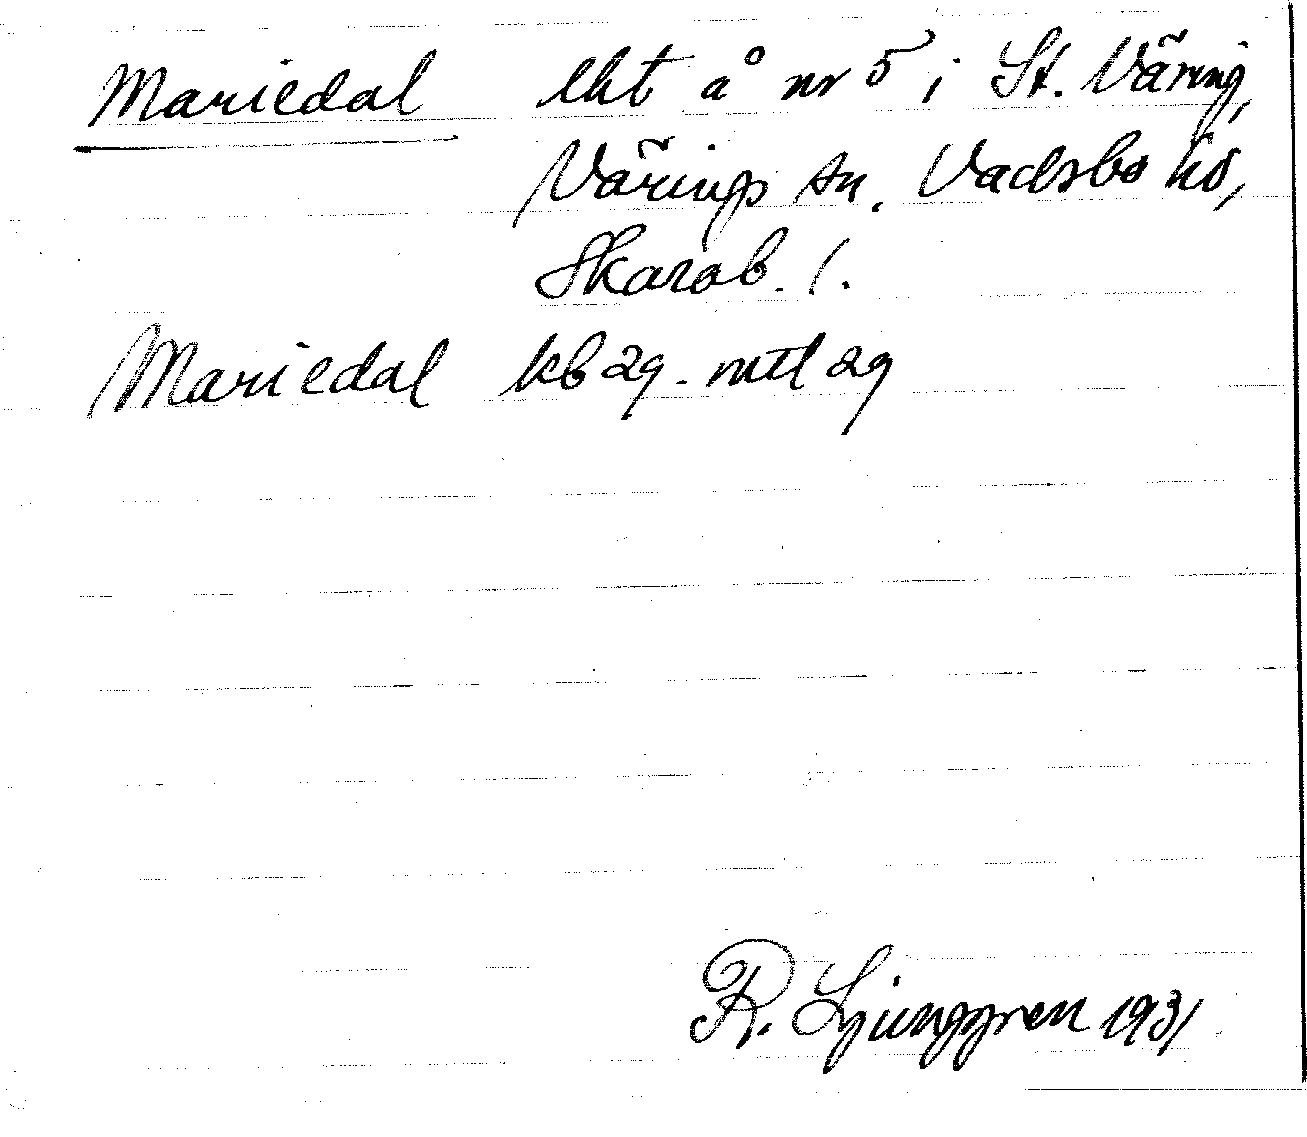 Mariedal lht å nr 5 i St. Väring,
Värings sn. Vadsbo hd,
Skarab. l.
Mariedal kb 29 - mtl 29
R. Ljunggren 1931